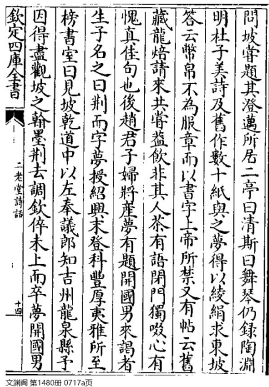 問坡嘗題其澄邁所居二亭曰清斯曰舞琴仍錄陶淵
明杜子美詩及舊作數十紙與之夢得以綾絹求東坡
答云幣帛不為服章而以書字上帝所禁又有帖云舊
藏龍焙請來共嘗益飲非其人茶有語閉門獨啜心有
愧真佳句也後趙君子婦將產夢有題開國男來謁者
生子名之曰荆而字夢授紹興末登科豐厚夷雅所至
榜書室曰見坡乾道中以左奉議郎知吉州龍泉縣予
因得盡觀坡之翰墨荆去調欽倅未上而卒夢開國男
欽定四庫全書
二老堂詩話
十四
文渊阁 第1480册 0717a页